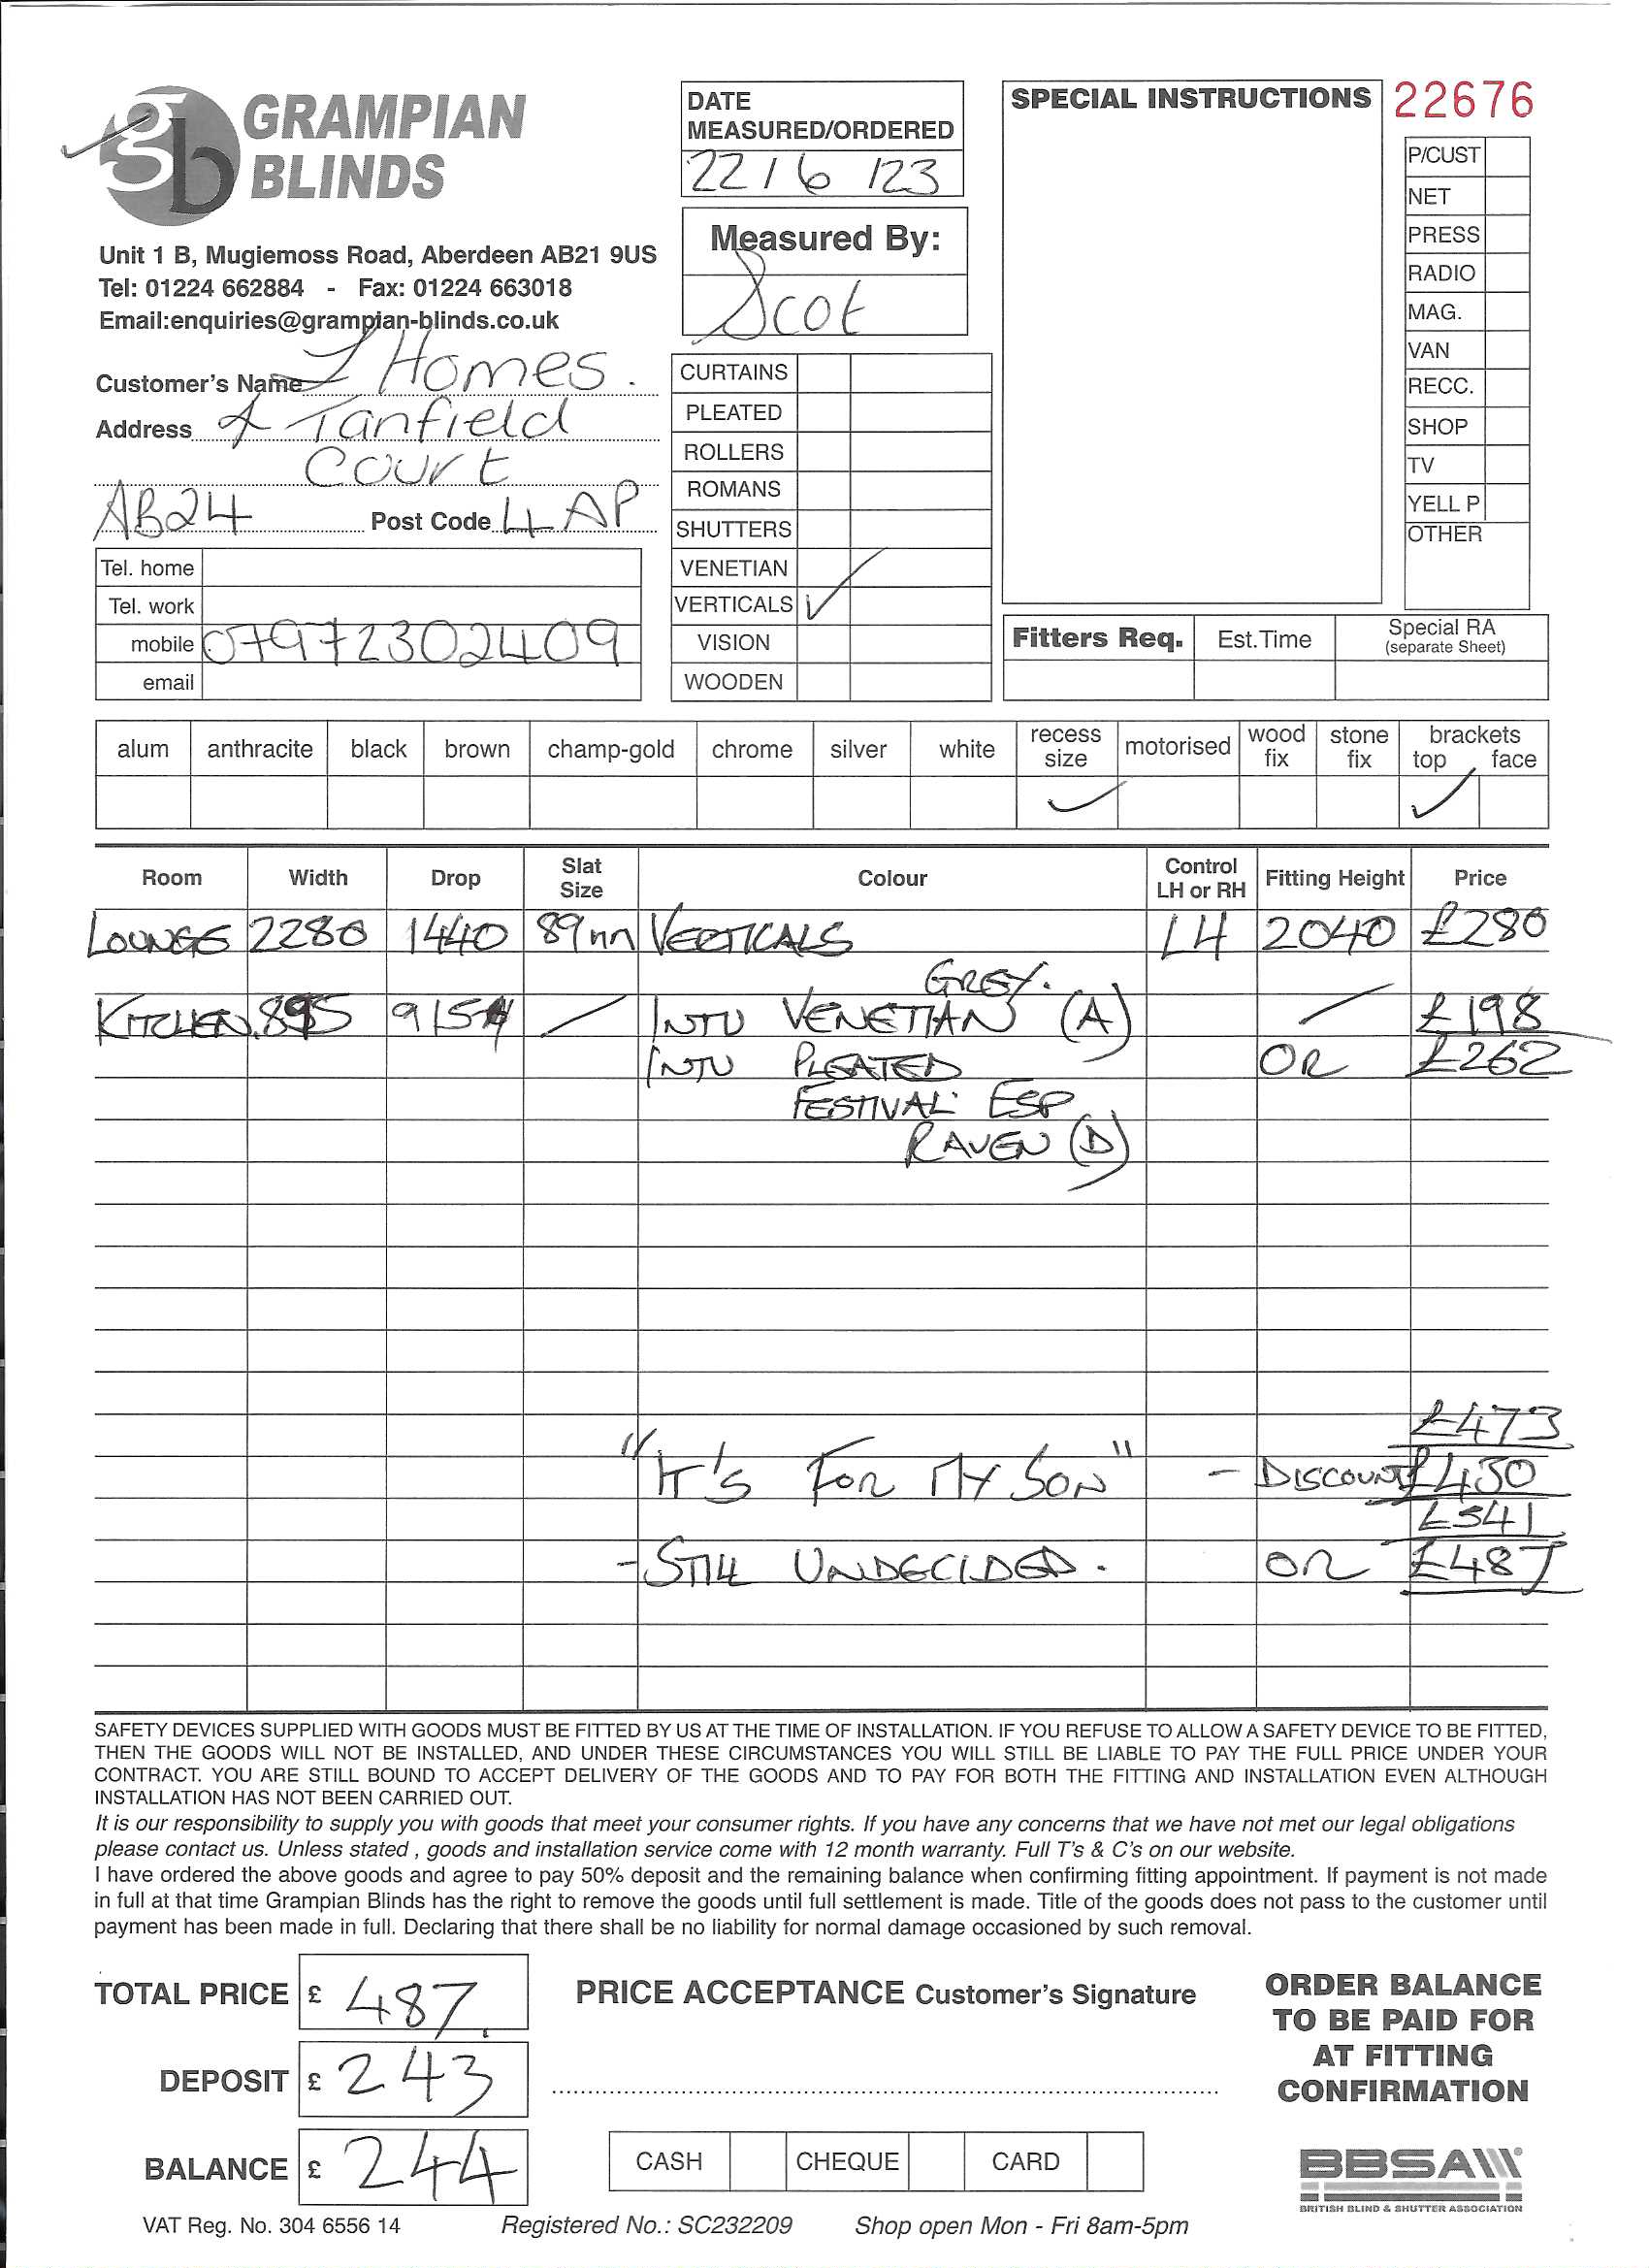 GRAMPIAN
BLINDS
Unit 1 B, Mugiemoss Road, Aberdeen AB21 9US
Tel: 01224 662884 - Fax: 01224 663018
Email:enquiries@grampian-blinds.co.uk
Customer's Name Homes.
Address Tanfield
Court
AB24 Post Code 4AP
Tel. home
Tel. work
mobile 07972302409
email
DATE
MEASURED/ORDERED
22/6/23
Measured By:
Scot
CURTAINS
PLEATED
ROLLERS
ROMANS
SHUTTERS
VENETIAN
VERTICALS ✓
VISION
WOODEN
SPECIAL INSTRUCTIONS
22676
P/CUST
NET
PRESS
RADIO
MAG.
VAN
RECC.
SHOP
TV
YELL P
OTHER
Fitters Req. Est.Time Special RA
(separate Sheet)
alum anthracite black brown champ-gold chrome silver white recess size motorised wood fix stone fix brackets top face
✓ ✓
Room Width Drop Slat Size Colour Control LH or RH Fitting Height Price
LOUNGE 2280 1440 89mm VERTICALS LH 2040 £280
GREY.
KITCHEN 895 915 / INTU VENETIAN (A) / £198
INTU PLEATED OR £262
FESTIVAL ESP
RAVEN (D)
£473
"IT'S FOR MY SON" - DISCOUNT £430
£541
- STILL UNDECIDED. OR £487
SAFETY DEVICES SUPPLIED WITH GOODS MUST BE FITTED BY US AT THE TIME OF INSTALLATION. IF YOU REFUSE TO ALLOW A SAFETY DEVICE TO BE FITTED,
THEN THE GOODS WILL NOT BE INSTALLED, AND UNDER THESE CIRCUMSTANCES YOU WILL STILL BE LIABLE TO PAY THE FULL PRICE UNDER YOUR
CONTRACT. YOU ARE STILL BOUND TO ACCEPT DELIVERY OF THE GOODS AND TO PAY FOR BOTH THE FITTING AND INSTALLATION EVEN ALTHOUGH
INSTALLATION HAS NOT BEEN CARRIED OUT.
It is our responsibility to supply you with goods that meet your consumer rights. If you have any concerns that we have not met our legal obligations
please contact us. Unless stated , goods and installation service come with 12 month warranty. Full T's & C's on our website.
I have ordered the above goods and agree to pay 50% deposit and the remaining balance when confirming fitting appointment. If payment is not made
in full at that time Grampian Blinds has the right to remove the goods until full settlement is made. Title of the goods does not pass to the customer until
payment has been made in full. Declaring that there shall be no liability for normal damage occasioned by such removal.
TOTAL PRICE £ 487.
DEPOSIT £ 243
BALANCE £ 244
PRICE ACCEPTANCE Customer's Signature
CASH CHEQUE CARD
ORDER BALANCE
TO BE PAID FOR
AT FITTING
CONFIRMATION
BBSA
BRITISH BLIND & SHUTTER ASSOCIATION
VAT Reg. No. 304 6556 14 Registered No.: SC232209 Shop open Mon - Fri 8am-5pm